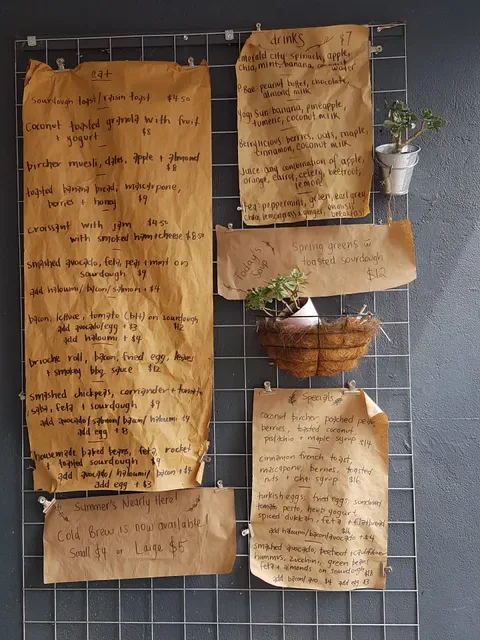 eat
sourdough toast/raisin toast $4.50
coconut toasted granola with fruit
+ yogurt $8
bircher muesli, dates, apple + almond
$8
toasted banana bread, mascarpone,
berries + honey $9
croissant with jam $4.50
with smoked ham + cheese $8.50
smashed avocado, feta, peas + mint on
sourdough $9
add haloumi/bacon/salmon + $4
bacon, lettuce, tomato (blt) on sourdough
add avocado/egg + $3 $12
add haloumi + $4
brioche roll, bacon, fried egg,
+ smokey bbq sauce $12
smashed chickpeas, coriander + tomato
salsa, feta + sourdough $9
add avocado/salmon/bacon/haloumi $4
add egg + $3
homemade baked beans, feta, rocket
+ toasted sourdough $9
add avocado/haloumi/bacon + $4
add egg + $3
Summer's Nearly Here!
Cold Brew is now available
Small $4 or Large $5
drinks $7
Emerald city: spinach, apple,
chia, mint, banana, water
P Bae: peanut butter, chocolate,
almond milk
Yogi Sun: banana, pineapple,
tumeric, coconut milk
Berrylicious: berries, oats, maple,
cinnamon, coconut milk
Juice: any combination of apple,
orange, carrot, celery, beetroot,
lemon
Tea: peppermint, green, earl grey
chai, lemongrass + ginger, breakfast
Today's
Soup
Spring greens @
toasted sourdough
$12
Specials
coconut bircher, poached pear,
berries, toasted coconut,
pistachio + maple syrup $14
cinnamon french toast,
mascarpone, berries, toasted
nuts + chai syrup $16
turkish eggs: fried eggs,
tomato pesto, herb yogurt,
spiced dukkah, feta + flatbread
add haloumi/bacon/avocado + $4
smashed avocado, beetroot
hummus, zucchini, green beans,
feta + almonds on sourdough
add bacon/avo $4 add egg $3